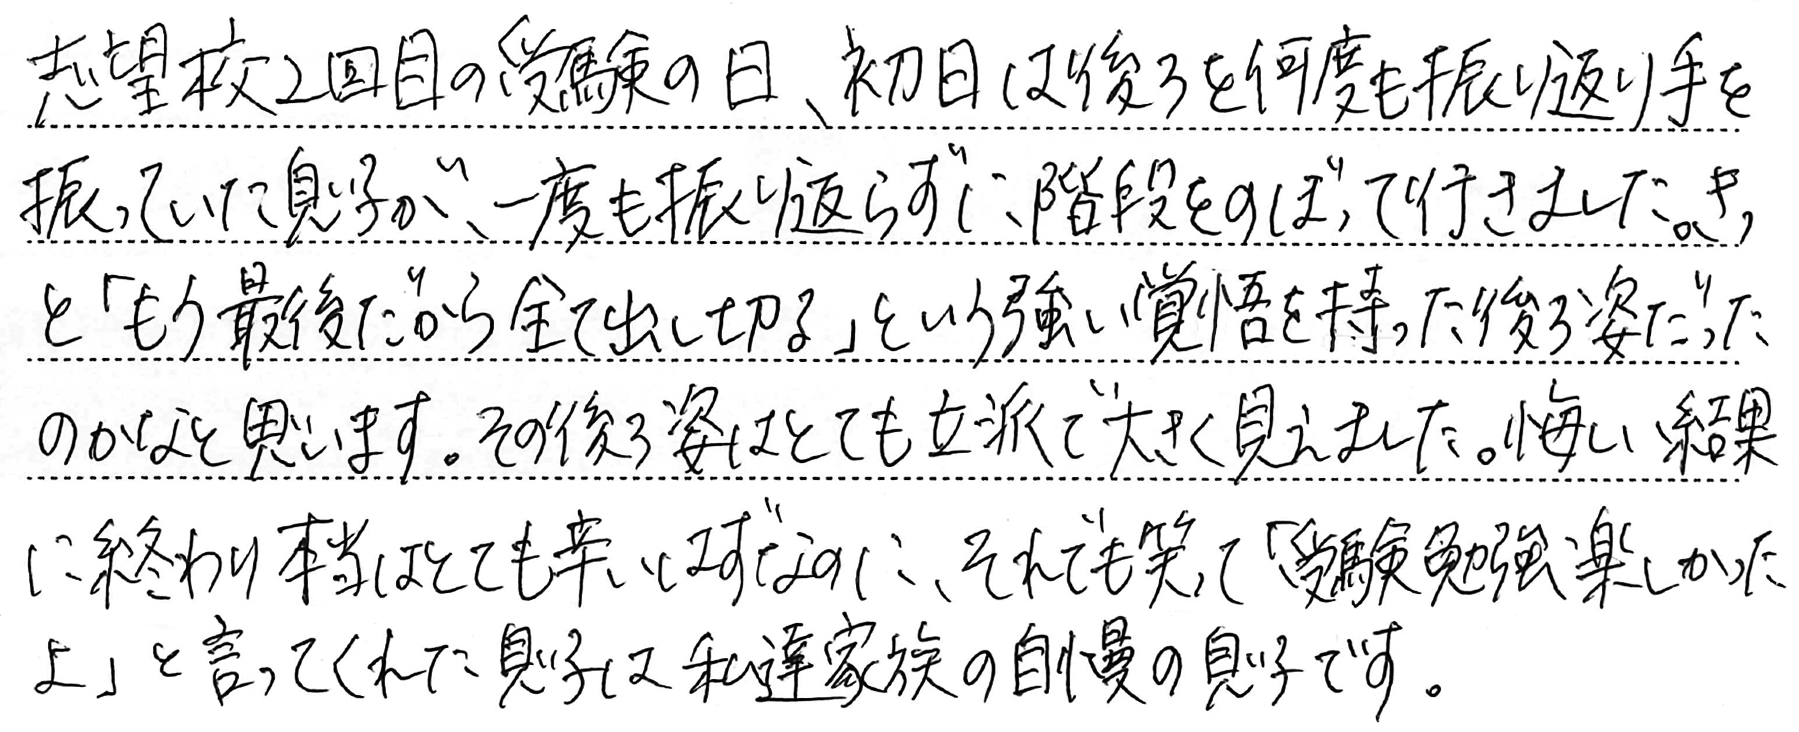 志望校2回目の受験の日、初日は後ろを何度も振り返り手を
振っていた息子が、一度も振り返らずに、階段をのぼって行きました。きっ
と「もう最後だから全て出し切る」という強い覚悟を持った後ろ姿だった
のかなと思います。その後ろ姿はとても立派で大きく見えました。悔しい結果
に終わり本当はとても辛いはずなのに、それでも笑って「受験勉強楽しかった
よ」と言ってくれた息子は私達家族の自慢の息子です。